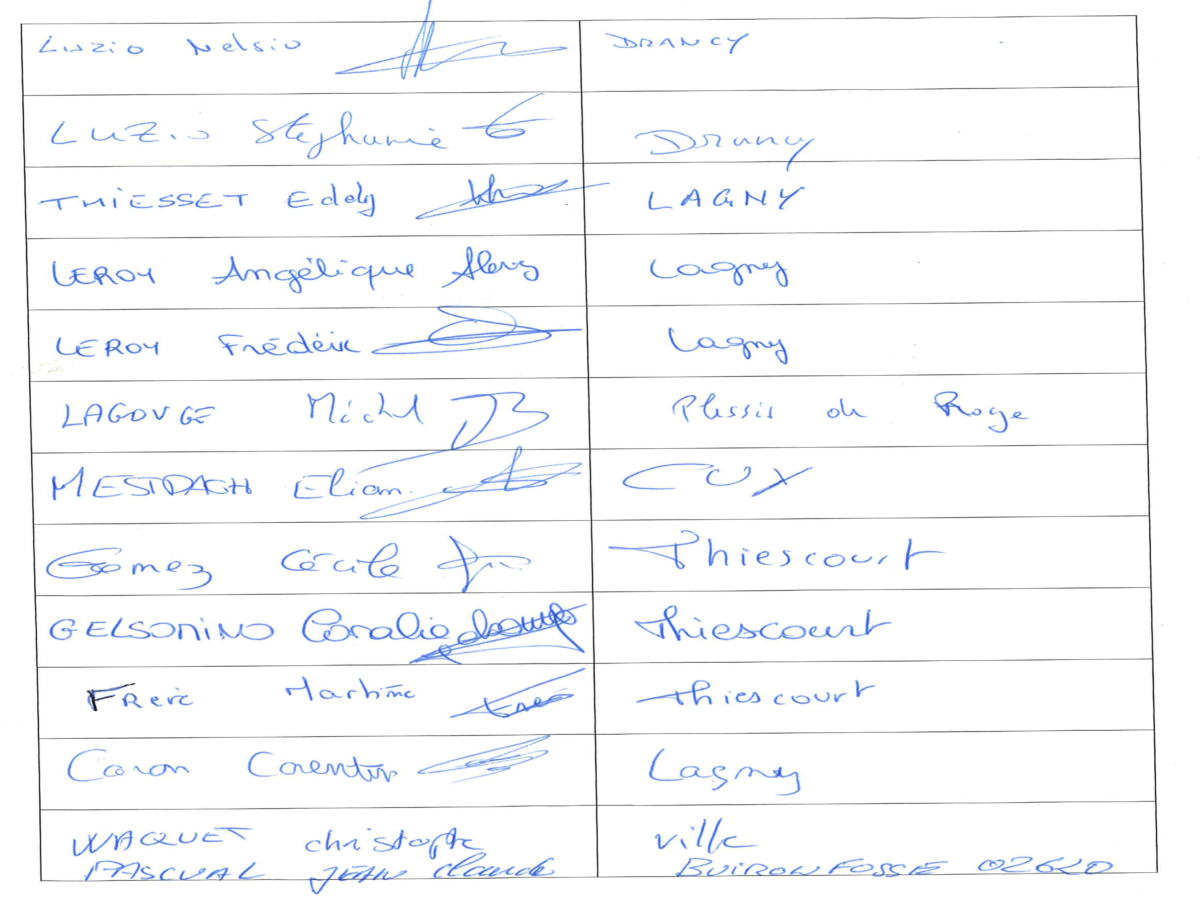 Luzio Nelsio DRANCY
LUZio Stéphanie Drancy
THIESSET Eddy LAGNY
LEROY Angélique Lagny
LEROY Frédéric Lagny
LAGOUGE Michel Plessis de Roye
MESTDAGH Eliane CUY
Gomez Cécile Thiescourt
GELSOMINO Coralie Thiescourt
FRere Martine Thiescourt
Caron Corentin Lagny
WACQUET christophe ville
PASCUAL JEAN Claude BUIRONFOSSE 02620